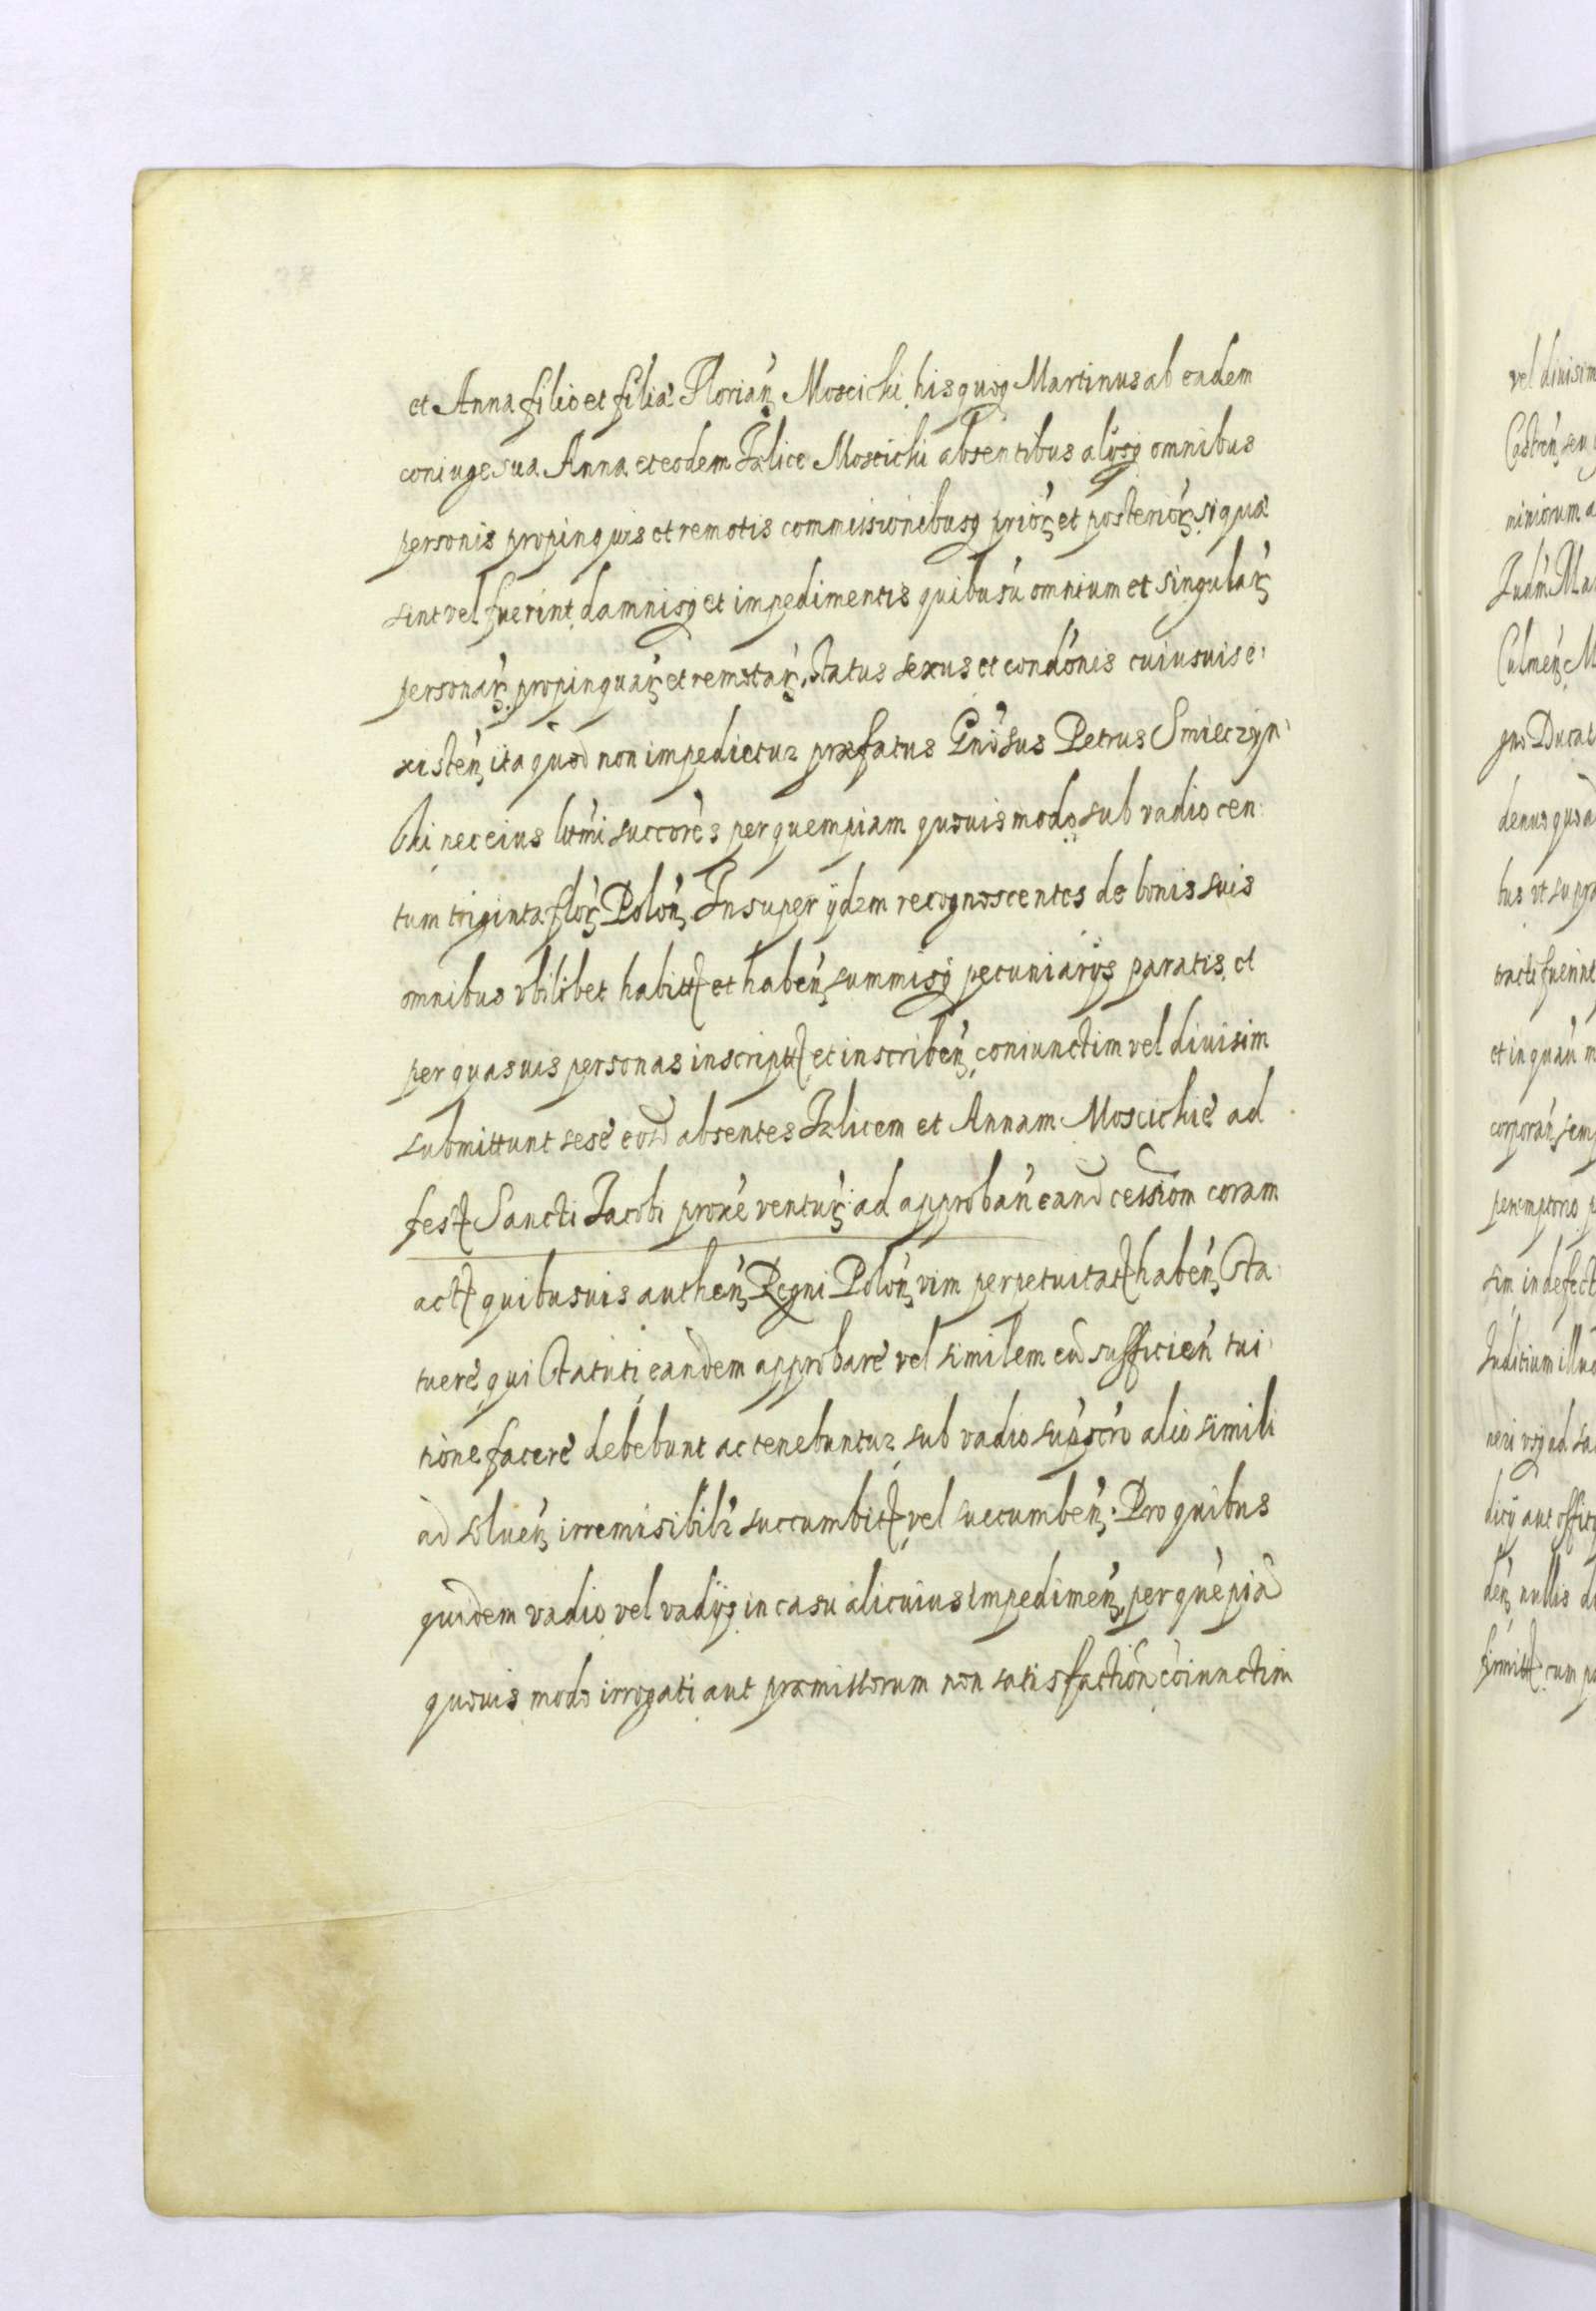 et Anna filio et filiæ Florian̄ Moscicki, hisquoq Martinus ab eadem
coniuge sua Anna et eodem Fælice Moscicki absentibus alijsq omnibus
personis propinquis et remotis commissionibusq prior et posterior, si quæ
sint vel fuerint, damnisq et impedimentis quibusù omnium et singular
personar, propinquar et remotar, status sexus et condonis cuiusuis e:
xisten ita quod non impedietur præfatus Gnosus Petrus Smieczyn:
ski nec eius litmi succores per quempiam quouis modo sub vadio cen:
tum triginta flor Polon. Insuper ijdem recognoscentes de bonis suis
omnibus vbilibet habitt et haben summisq pecuniarijs paratis, et
per quasuis personas inscriptt et inscriben, coniunctim vel diuisim
submittunt sese eosd absentes Fælicem et Annam Moscickie ad
fest Sancti Jacobi proxe ventur: ad approban eand cession coram
act quibusuis authen Regni Polon vim perpetuitat haben Sta:
tuere, qui Statuti, eandem approbare vel similem cu sufficien tui:
tione facere debebunt ac tenebuntur, sub vadio supscro alio simili
ad soluen irremisibilr succumbit vel succumben: Pro quibus
quidem vadio, vel vadijs, in casu alicuius impedimen, per quepia
quouis modo irrogati aut præmissorum non satisfaction coiunctim
vel diuisim
Culmen
gno Ducat
tracti fuerint
peremptorio
in defect
Iuditium illud
nullis